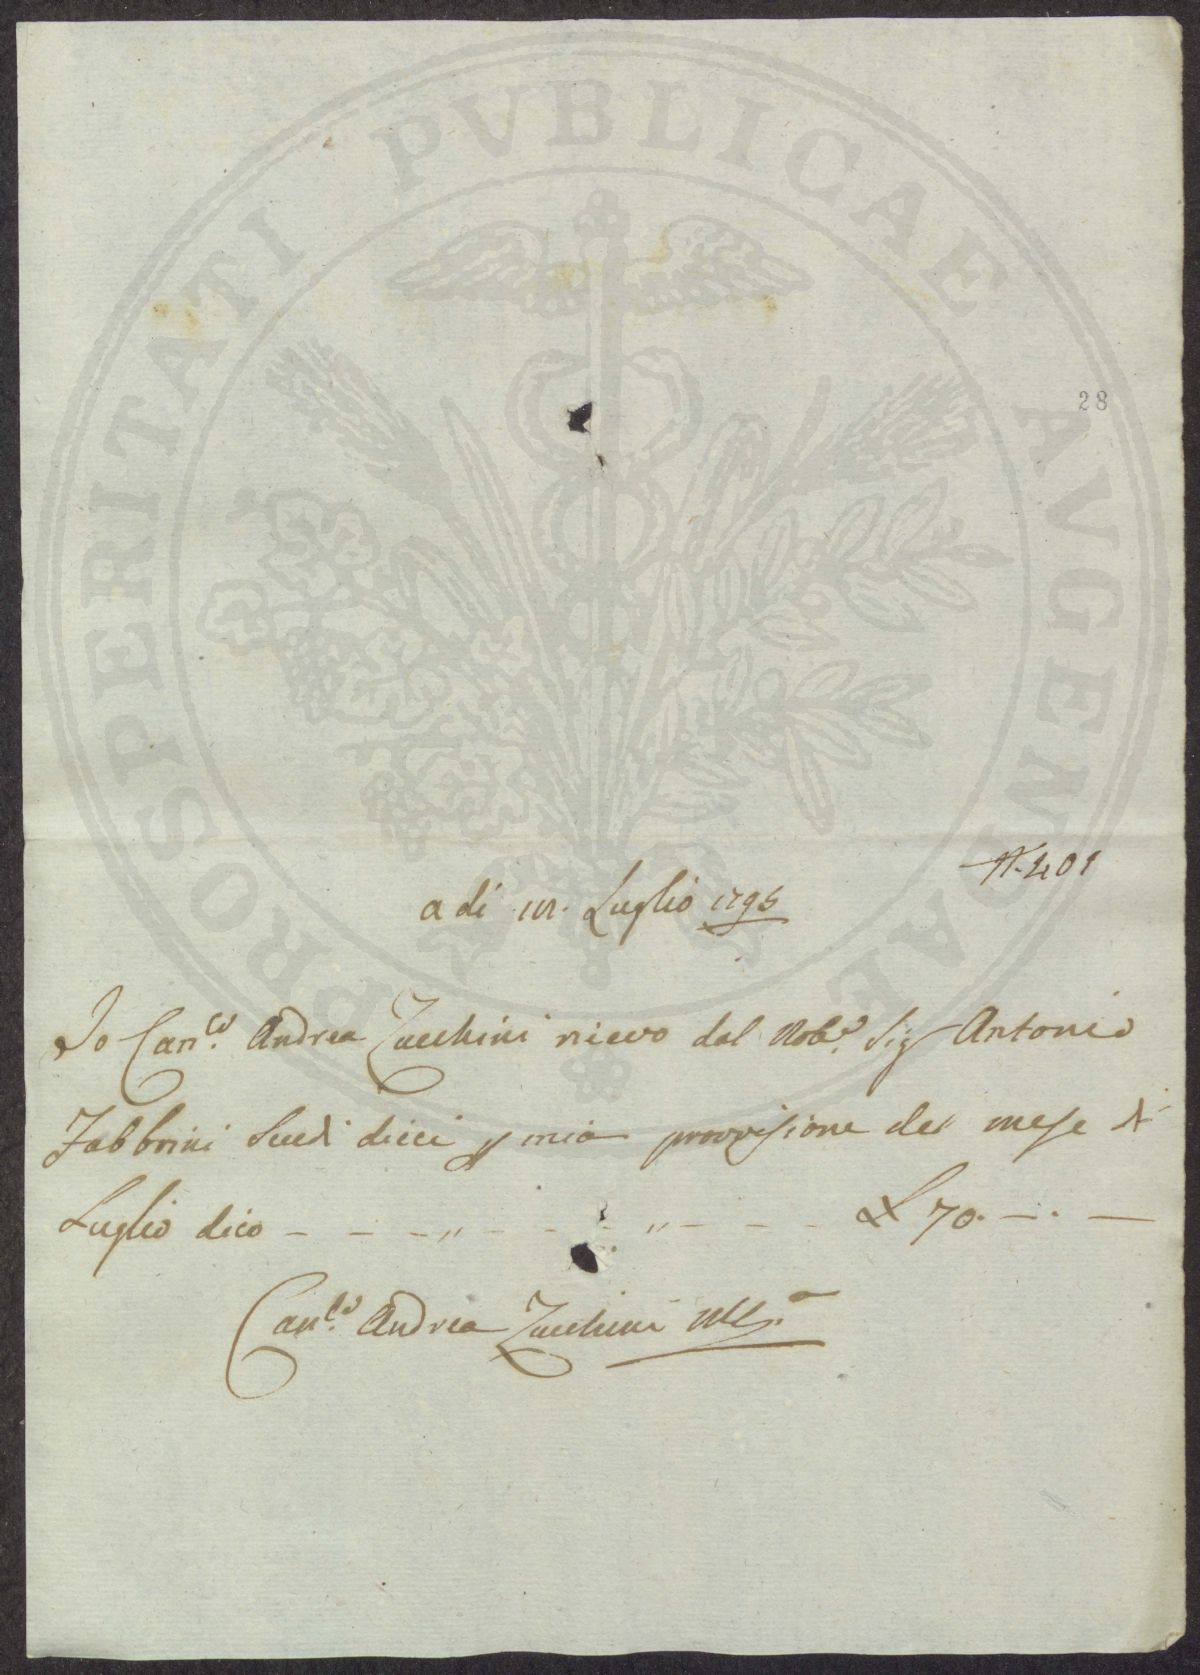 PROSPERITATI PVBLICAE AVGENDAE
28
N. 401
a di 1mo. Luglio 1795
Io Can.co Andrea Zucchini ricevo dal Nob.e Sig Antonio
Fabbrini Scudi dieci p mia provvisione del mese di
Luglio dico - - - „ - - - - „ - - - - £ 70. - . -
Can.co Andrea Zucchini